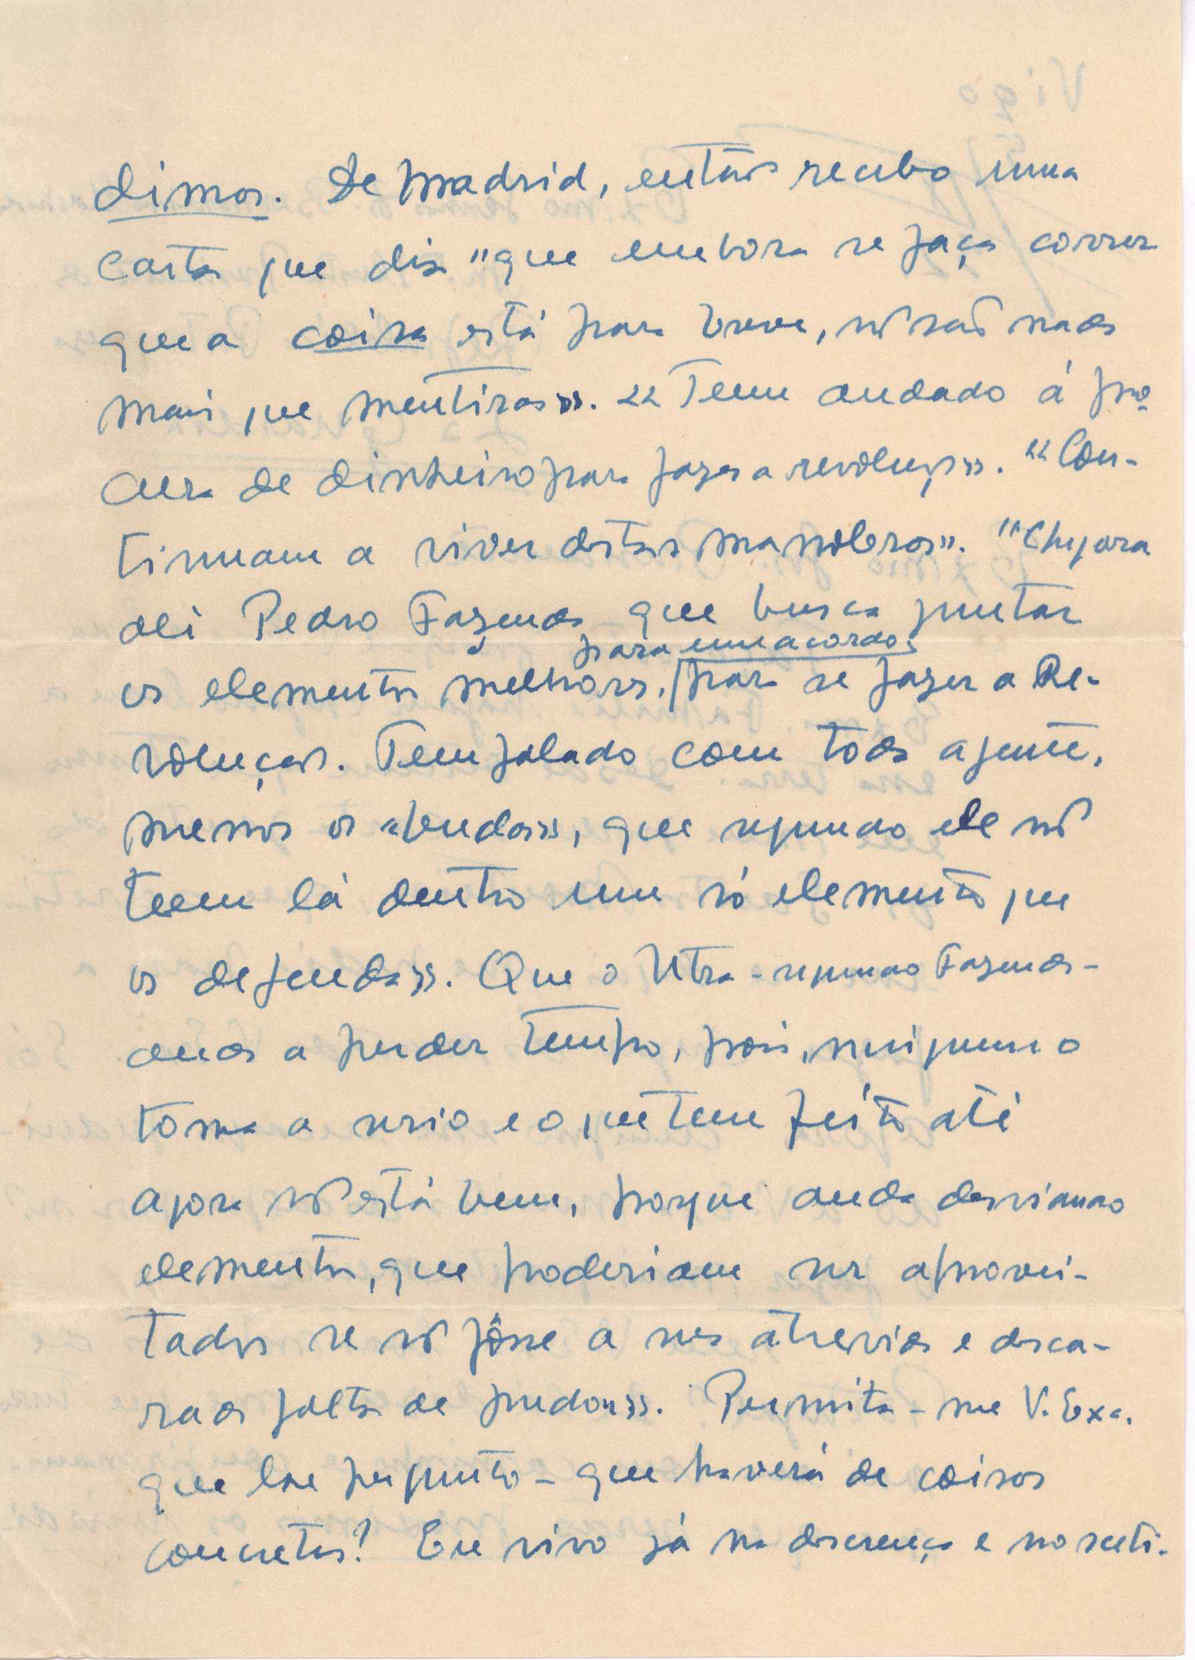 dimos. De Madrid, então recebo uma
carta que diz "que embora se faça correr
que a coisa está para breve, não são nada
mais que mentiras». «Tem andado á pro
cura de dinheiro para fazer a revolução». "Con-
tinuam a viver destas manobras». "Chegara
ali Pedro Fazenda que busca juntar
para um acordo,
os elementos melhores, para se fazer a Re-
volução. Tem falado com toda a gente,
menos os «budas», que segundo ele não
teem lá dentro um só elemento que
os defenda». Que o Utra - segundo Fazenda -
anda a perder tempo, pois, ninguem o
toma a serio e o que tem feito até
agora não está bem, porque anda desviando
elementos, que poderiam ser aprovei-
tados se não fôsse a sua atrevida e desca-
rada falta de pudor». Permita-me V. Exa.
que lhe pergunto - que haverá de coisas
concretas? Eu vivo já na descrença e no scéti-